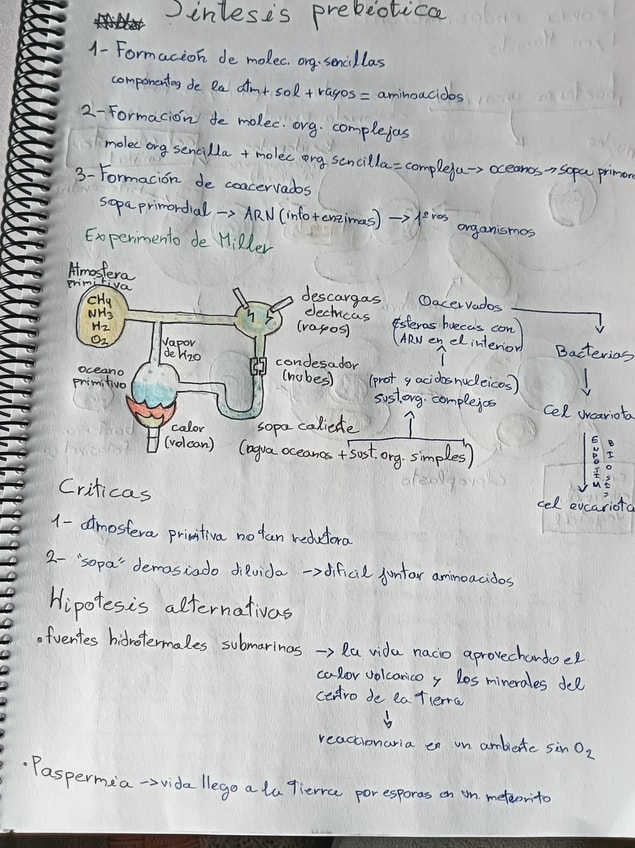 Sintesis prebiotica
1- Formacion de molec. org. sencillas
componentes de la atm + sol + rayos = aminoacidos
2- Formación de molec. org. complejas
molec org sencilla + molec org sencilla = compleja -> oceanos -> sopa primor
3- Formación de coacervados
sopa primordial -> ARN (info + enzimas) -> 1º ros organismos
Experimento de Miller
Atmosfera
primitiva
CH4
NH3
H2
O2
vapor
de H2O
oceano
primitivo
calor
(volcan)
descargas
electricas
(rayos)
condesador
(nubes)
sopa caliente
(agua oceanos + sust. org. simples)
Coacervados
(esferas huecas con
ARN en el interior)
(prot y acidos nucleicos)
sust. org. complejos
Bacterias
cel urcariota
ENDOSIM
BIOSIS
cel eucariota
Criticas
1- atmosfera primitiva no tan reductora
2- "sopa" demasiado diluida -> dificil juntar aminoacidos
Hipotesis alternativas
• fuentes hidrotermales submarinas -> la vida nacio aprovechando el
calor volcanico y los minerales del
centro de la Tierra
reaccionaria en un ambiente sin O2
• Paspermia -> vida llego a la Tierra por esporas en un meteorito